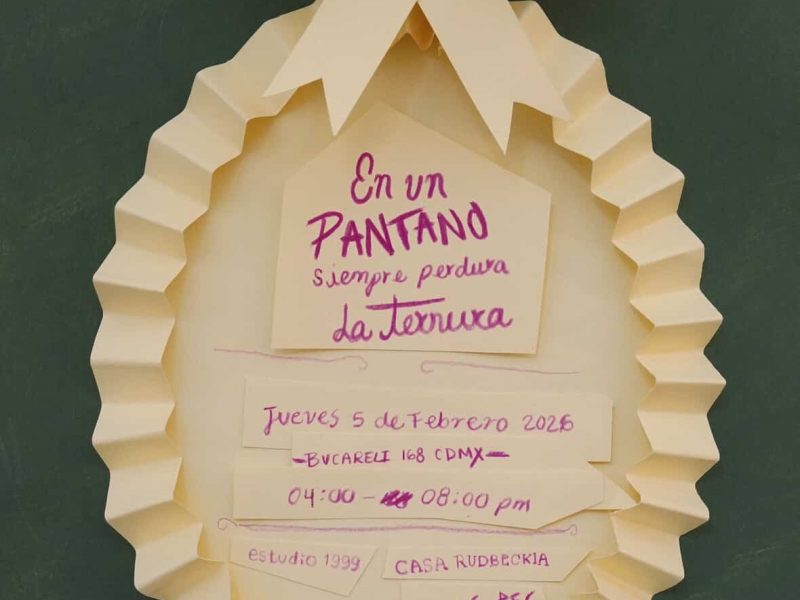 En un
PANTANO
siempre perdura
La Ternura
Jueves 5 de Febrero 2026
-BUCARELI 168 CDMX-
04:00 - 08:00 pm
estudio 1999
CASA RUDBECKIA